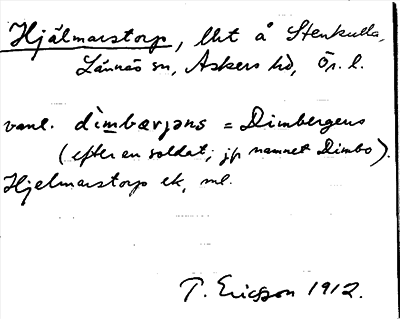 Hjälmarstorp, lht å Stenkulla,
Lännäs sn, Askers hd, Ör. l.
vanl. dìmbærjəns = Dimbergens
(efter en soldat; jfr namnet Dimbo).
Hjelmarstorp ek, ml.
T. Ericsson 1912.